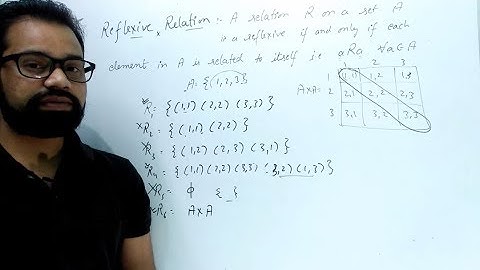 Reflexive Relation :- A relation R on a set A
is a reflexive if and only if each
element in A is related to itself i.e aRa ∀a∈A
A = {1,2,3}
R₁ = {(1,1) (2,2) (3,3)}
×R₂ = {(1,1) (2,2)}
×R₃ = {(1,2) (2,3) (3,1)}
R₄ = {(1,1) (2,2) (3,3) (3,2) (1,3)}
×R₅ = ϕ { }
R₆ = A×A
1 2 3
1 1,1 1,2 1,3
A×A= 2 2,1 2,2 2,3
3 3,1 3,2 3,3